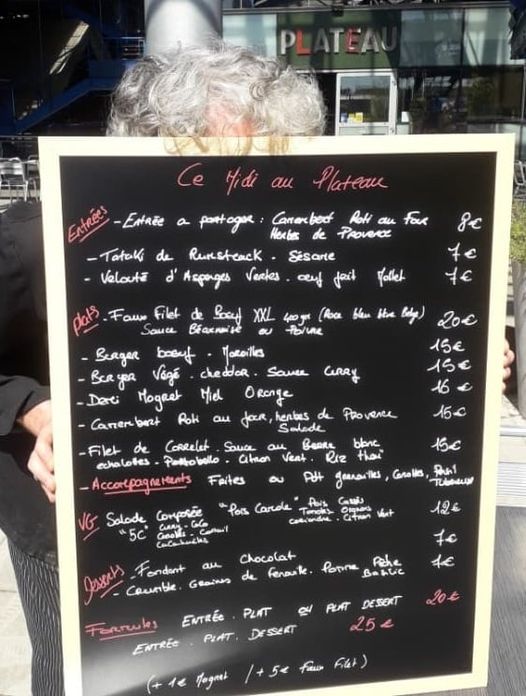 PLATEAU
Ce Midi au Plateau
Entrées - Entrée a partager : Camembert Roti au Four 8€
Herbes de Provence
- Tataki de Rumsteack . Sésame 7€
- Velouté d'Asperges Vertes . oeuf parfait Mollet 7€
Plats - Faux Filet de Boeuf XXL 400gr (Race bleu blanc Belge) 20€
Sauce Béarnaise ou Poivre
- Burger boeuf . Maroilles 15€
- Burger Végé . cheddar . Sauce Curry 15€
- Demi Magret Miel Orange 16€
- Camembert Roti au four, herbes de Provence 15€
Salade
- Filet de Carrelet . Sauce au Beurre blanc 15€
echalottes . Portobello . Citron Vert . Riz thaï
- Accompagnements Frites ou Pdt grenailles, Carottes,
VG Salade Composée "Pois Carole" Pois Cassés 12€
"5C" Curry - Coco Tomates Oignons
Carottes - coriandre . Citron Vert
7€
Desserts - Fondant au Chocolat 7€
- Crumble . Graines de fenouille . Pomme Pêche
Basilic
Formules ENTRÉE . PLAT ou PLAT DESSERT 20€
ENTRÉE . PLAT . DESSERT 25€
(+ 1€ Magret / + 5€ Faux Filet)